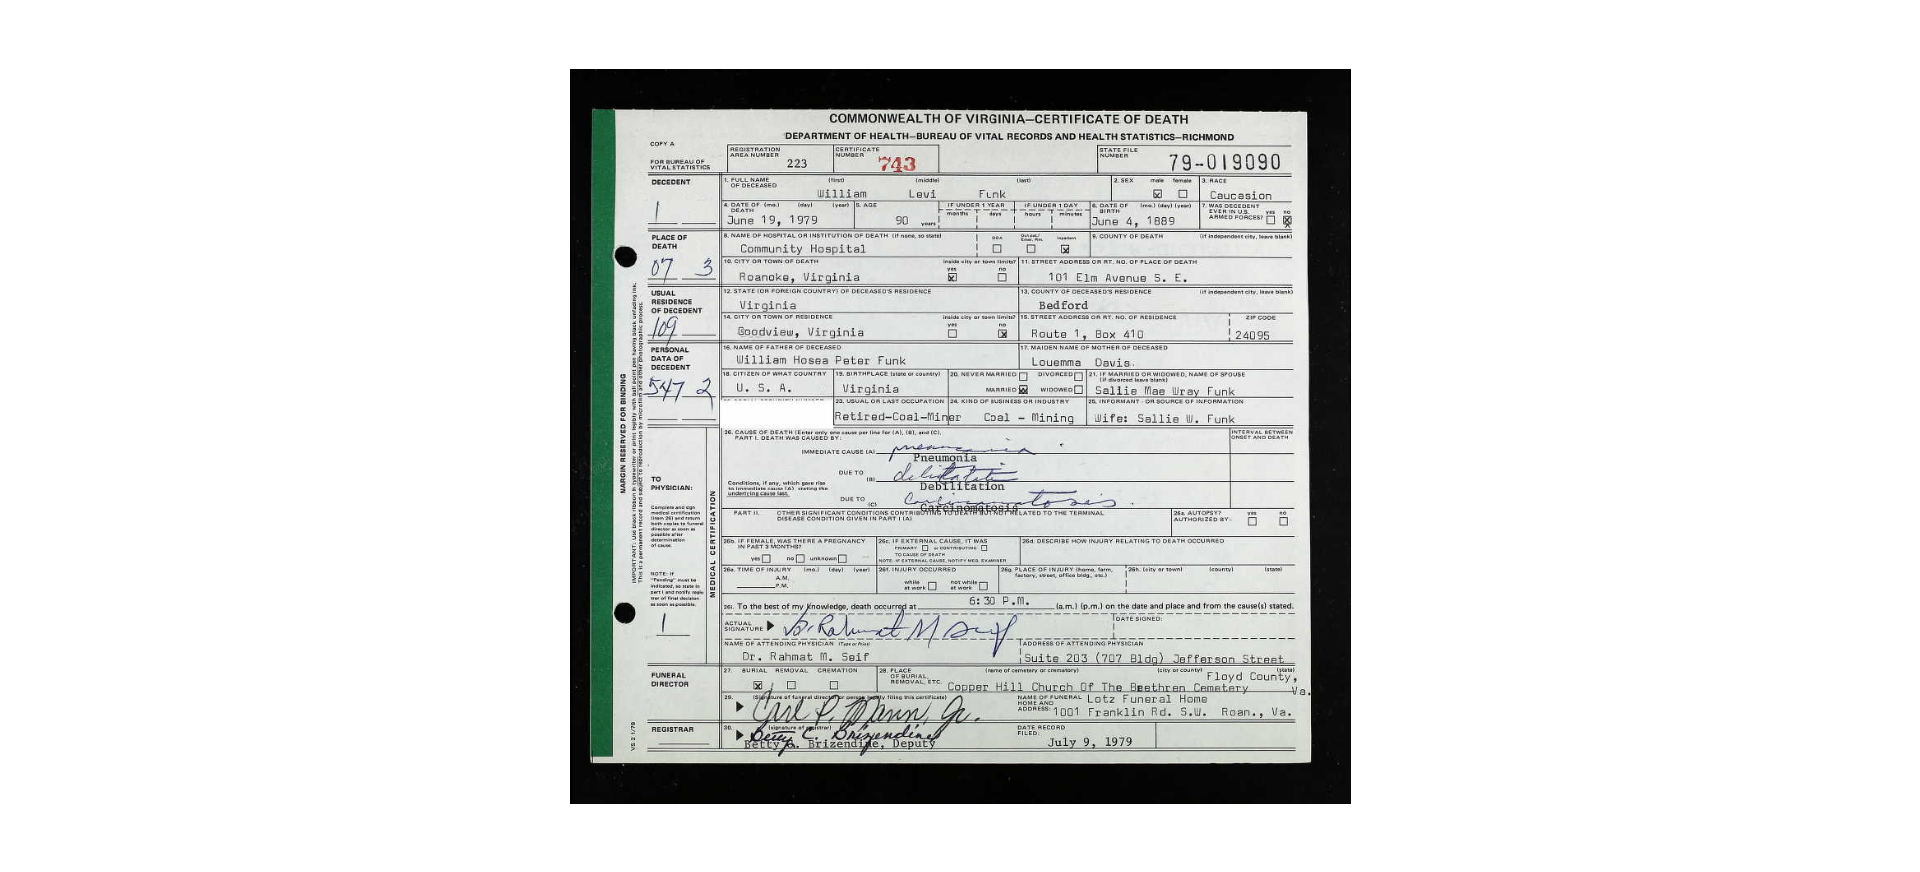 COMMONWEALTH OF VIRGINIA—CERTIFICATE OF DEATH
DEPARTMENT OF HEALTH—BUREAU OF VITAL RECORDS AND HEALTH STATISTICS—RICHMOND
COPY A
FOR BUREAU OF VITAL STATISTICS
REGISTRATION AREA NUMBER 223
CERTIFICATE NUMBER 743
STATE FILE NUMBER 79-019090
DECEDENT
1
1. FULL NAME OF DECEASED (first) (middle) (last)
William Levi Funk
2. SEX male ☒ female ☐
3. RACE
Caucasion
4. DATE OF DEATH (mo.) (day) (year)
June 19, 1979
5. AGE
90 years
IF UNDER 1 YEAR months days
IF UNDER 1 DAY hours minutes
6. DATE OF BIRTH (mo.) (day) (year)
June 4, 1889
7. WAS DECEDENT EVER IN U.S. ARMED FORCES? yes ☐ no ☒
PLACE OF DEATH
07 3
8. NAME OF HOSPITAL OR INSTITUTION OF DEATH (if none, so state)
Community Hospital
DOA ☐ ☐ Inpatient ☒
9. COUNTY OF DEATH (if independent city, leave blank)
10. CITY OR TOWN OF DEATH
Roanoke, Virginia
inside city or town limits? yes ☒ no ☐
11. STREET ADDRESS OR RT. NO. OF PLACE OF DEATH
101 Elm Avenue S. E.
USUAL RESIDENCE OF DECEDENT
109
12. STATE (OR FOREIGN COUNTRY) OF DECEASED'S RESIDENCE
Virginia
13. COUNTY OF DECEASED'S RESIDENCE (if independent city, leave blank)
Bedford
14. CITY OR TOWN OF RESIDENCE
Goodview, Virginia
inside city or town limits? yes ☐ no ☒
15. STREET ADDRESS OR RT. NO. OF RESIDENCE
Route 1, Box 410
ZIP CODE
24095
PERSONAL DATA OF DECEDENT
547 2
16. NAME OF FATHER OF DECEASED
William Hosea Peter Funk
17. MAIDEN NAME OF MOTHER OF DECEASED
Louemma Davis
18. CITIZEN OF WHAT COUNTRY
U. S. A.
19. BIRTHPLACE (state or country)
Virginia
20. NEVER MARRIED ☐ DIVORCED ☐
MARRIED ☒ WIDOWED ☐
21. IF MARRIED OR WIDOWED, NAME OF SPOUSE (if divorced leave blank)
Sallie Mae Wray Funk
23. USUAL OR LAST OCCUPATION
Retired-Coal-Miner
24. KIND OF BUSINESS OR INDUSTRY
Coal - Mining
25. INFORMANT - OR SOURCE OF INFORMATION
Wife: Sallie W. Funk
MARGIN RESERVED FOR BINDING
MEDICAL CERTIFICATION
26. CAUSE OF DEATH (Enter only one cause per line for (A), (B), and (C).
PART I. DEATH WAS CAUSED BY:
INTERVAL BETWEEN ONSET AND DEATH
IMMEDIATE CAUSE (A) pneumonia
Pneumonia
DUE TO (B) debilitation
Debilitation
Conditions, if any, which gave rise to immediate cause (A), stating the underlying cause last.
DUE TO (C) Carcinomatosis
Carcinomatosis
TO PHYSICIAN:
Complete and sign medical certification (item 26) and return both copies to funeral director as soon as possible after determination of cause.
NOTE: If "Pending" must be indicated, so state in part I and notify registrar of final decision as soon as possible.
1
PART II. OTHER SIGNIFICANT CONDITIONS CONTRIBUTING TO DEATH BUT NOT RELATED TO THE TERMINAL DISEASE CONDITION GIVEN IN PART I (A)
26a. AUTOPSY? AUTHORIZED BY: yes ☐ no ☐
26b. IF FEMALE, WAS THERE A PREGNANCY IN PAST 3 MONTHS?
yes ☐ no ☐ unknown ☐
26c. IF EXTERNAL CAUSE, IT WAS
PRIMARY ☐ or CONTRIBUTING ☐
TO CAUSE OF DEATH
NOTE: IF EXTERNAL CAUSE, NOTIFY MED. EXAMINER
26d. DESCRIBE HOW INJURY RELATING TO DEATH OCCURRED
26e. TIME OF INJURY (mo.) (day) (year)
A.M.
P.M.
26f. INJURY OCCURRED
while at work ☐ not while at work ☐
26g. PLACE OF INJURY (home, farm, factory, street, office bldg., etc.)
26h. (city or town) (county) (state)
26i. To the best of my knowledge, death occurred at 6:30 P.M. (a.m.) (p.m.) on the date and place and from the cause(s) stated.
ACTUAL SIGNATURE Rahmat M Seif
DATE SIGNED:
NAME OF ATTENDING PHYSICIAN (Type or Print)
Dr. Rahmat M. Seif
ADDRESS OF ATTENDING PHYSICIAN
Suite 203 (707 Bldg) Jefferson Street
FUNERAL DIRECTOR
27. BURIAL ☒ REMOVAL ☐ CREMATION ☐
28. PLACE OF BURIAL, REMOVAL, ETC. (name of cemetery or crematory) (city or county) (state)
Copper Hill Church Of The Brethren Cemetery Floyd County, Va.
29. (Signature of funeral director or person legally filing this certificate)
Carl P. Mann, Jr.
NAME OF FUNERAL HOME AND ADDRESS:
Lotz Funeral Home
1001 Franklin Rd. S.W. Roan., Va.
REGISTRAR
30. (signature of registrar)
Betty C. Brizendine
Betty C. Brizendine, Deputy
DATE RECORD FILED:
July 9, 1979
VS 2 1/78